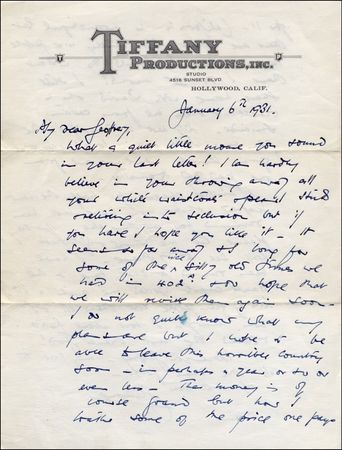 TIFFANY
PRODUCTIONS, INC.
T P
STUDIO
4516 SUNSET BLVD.
HOLLYWOOD, CALIF.
January 6th 1931.
My dear Geoffrey,
What a quiet little mouse you sound
in your last letter! I can hardly
believe in your throwing away all
your white waistcoats and
retiring into seclusion but if
you have I hope you like it – It
seems so far away & I long for
some of the silly old times we
had in & do hope that
we will revive them again soon –
I do not quite know what my
plans are but I hope to be
able to leave this horrible country
soon – in perhaps a year or so or
even less – The money is of
course grand but how I
loathe some of the price one pays